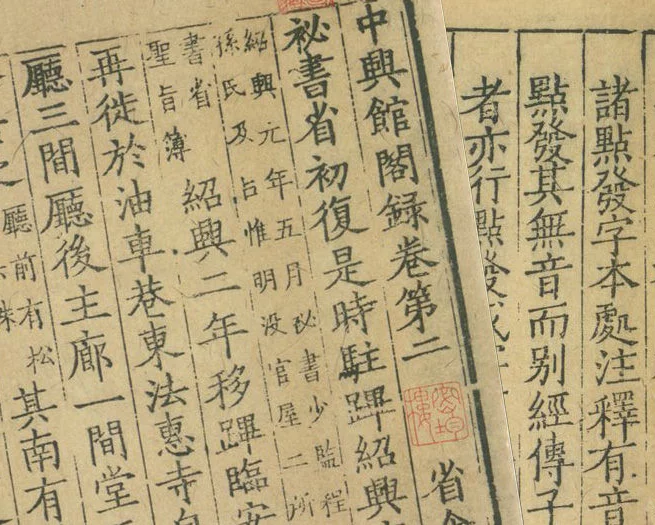 諸點發字本處注釋有音
點發其無音而别經傳子
者亦行點發
中興館閣録卷第二
省
祕書省初復是時駐蹕紹興
紹興元年五月祕書少監程
孫氏及占惟明没官屋二所
書省
聖旨簿
紹興二年移蹕臨安
再徙於油車巷東法惠寺
廳三間廳後主廊一間堂
廳前有松
其南有